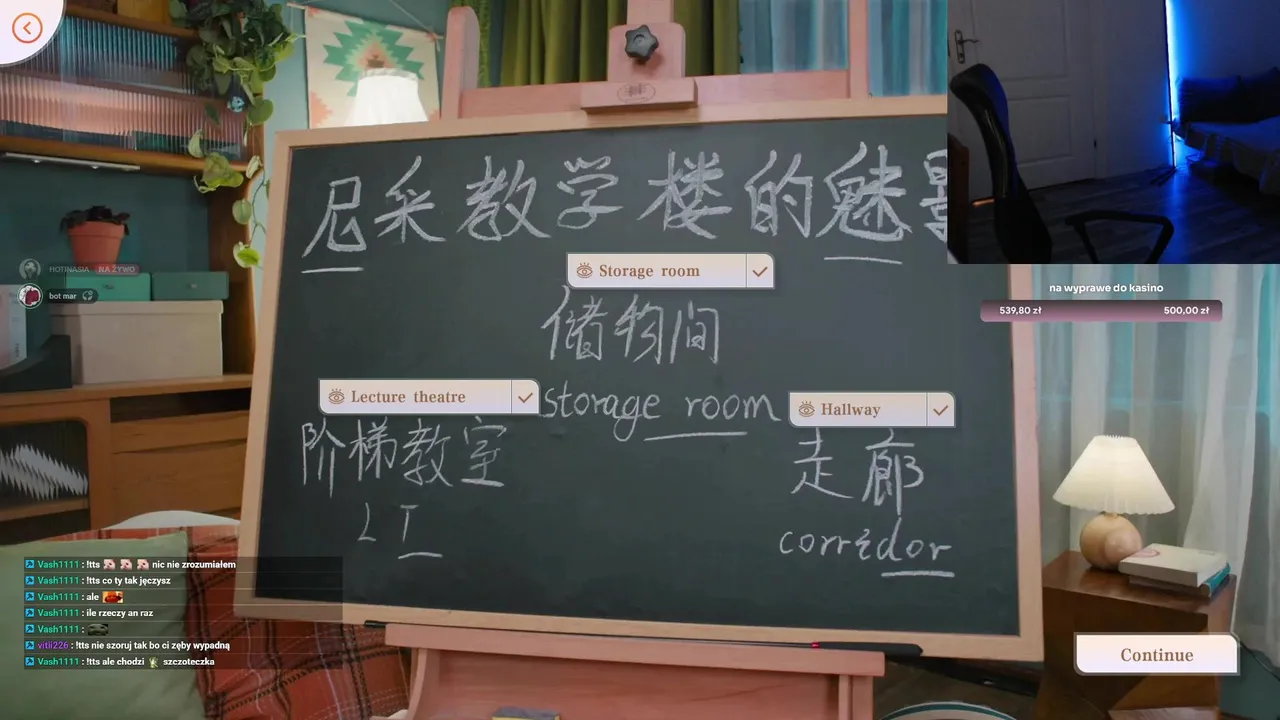 尼采教学楼的魅
Storage room
储物间
Lecture theatre
storage room
Hallway
阶梯教室
走廊
LT
corridor
HOTINASIA NA ŻYWO
bot mar
na wyprawe do kasino
539,80 zł 500,00 zł
Vash1111 : !tts nic nie zrozumiałem
Vash1111 : !tts co ty tak jęczysz
Vash1111 : ale
Vash1111 : ile rzeczy an raz
Vash1111 :
vitii226 : !tts nie szoruj tak bo ci zęby wypadną
Vash1111 : !tts ale chodzi szczoteczka
Continue